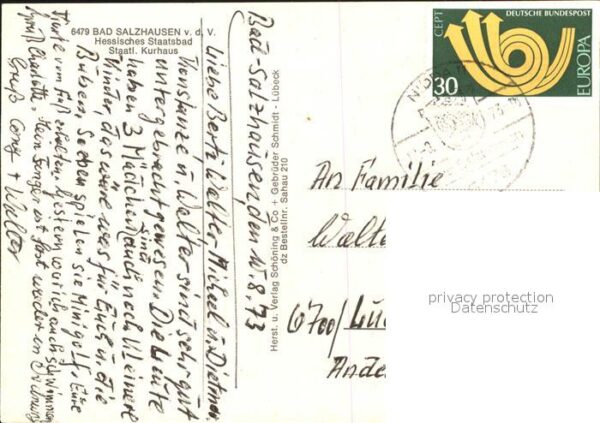 6479 BAD SALZHAUSEN v. d. V.
Hessisches Staatsbad
Staatl. Kurhaus
Bad-Salzhausen den 15.8.73
Liebe Berta, Walter, Michael u. Dietmar
Konstanze u. Walter sind sehr gut
untergebracht gewesen. Die Leute
haben 3 Mädchen, sind auch noch kleinere
Kinder, das wäre was für Euch u. die
Buben. So eben spielen sie Minigolf. Eure
Karte vom erhalten. Gestern war ich auch schwimmen
Charlotte. Mein Finger ist fast wieder in Ordnung
Gruß + Walter
Herst. u. Verlag Schöning & Co + Gebrüder Schmidt - Lübeck
dz Bestellnr. Sahau 210
CEPT
DEUTSCHE BUNDESPOST
EUROPA
30
An Familie
6700/
privacy protection
Datenschutz